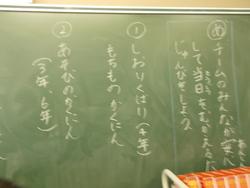 ㋱ チームのみんなが安心
して当日をむかえるた
じゅんびをしよう。
① しおりくばり(4年)
もちものかくにん
② あそびのかくにん
(3年、6年)